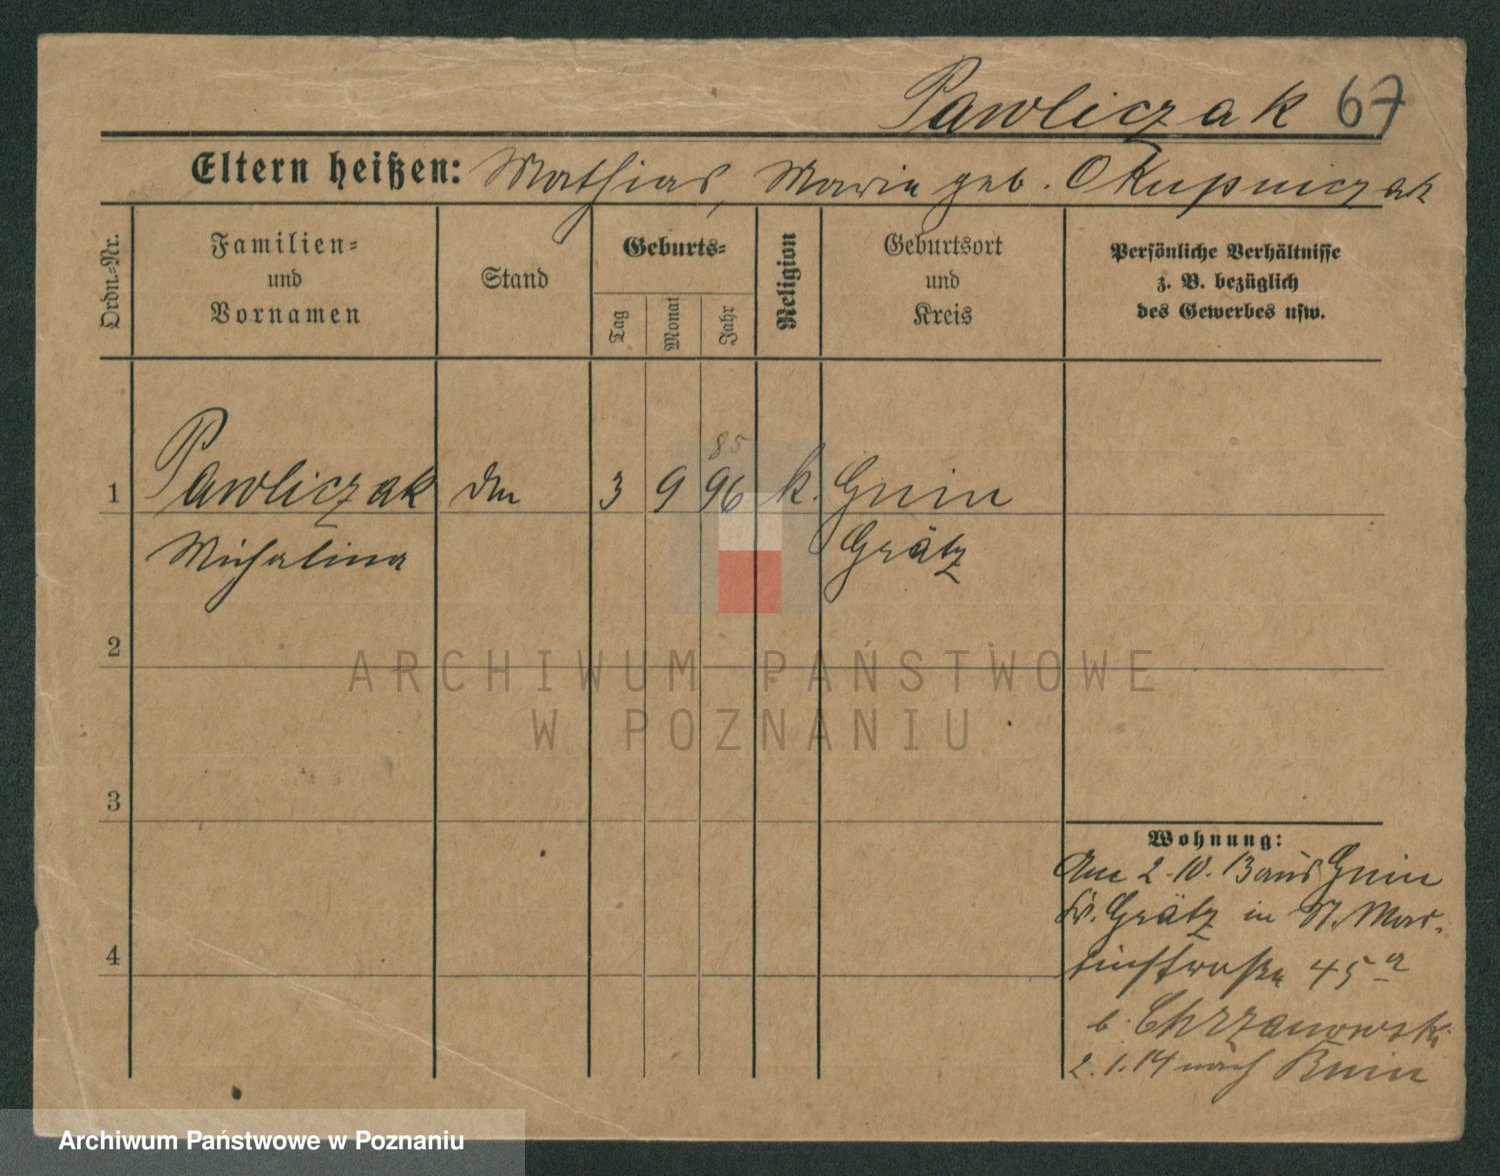 Pawliczak 67
Eltern heißen: Mathias, Marie geb. Skupniczak
Ordn.=Nr.
Familien=
und
Vornamen
Stand
Geburts=
Tag
Monat
Jahr
Religion
Geburtsort
und
Kreis
Persönliche Verhältnisse
z. B. bezüglich
des Gewerbes usw.
85
1 Pawliczak 3 9 96 k. Gnin
Michalina Grätz
2
3
4
Wohnung:
Am 2.10.13 aus Gnin
Kr. Grätz in St. Mar-
tinstraße 45a
b. Chrzanowski
2.1.14 nach Bnin
ARCHIWUM PAŃSTWOWE
W POZNANIU
Archiwum Państwowe w Poznaniu